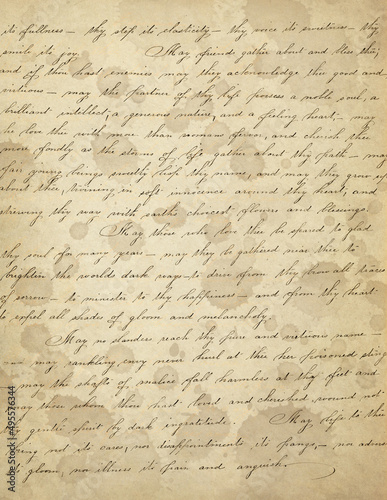 its fullness — thy step its elasticity — thy voice its sweetness — thy
smile its joy. May friends gather about and bless thee;
and if thou hast enemies may they acknowledge the good and
virtuous — may the partner of thy life possess a noble soul, a
brilliant intellect, a generous nature, and a feeling heart, — may
he love thee with more than womans fervor, and cherish thee
more fondly as the storms of life gather about thy path — may
fair young beings sweetly lisp thy name, and may they grow up
about thee, twining in soft innocence around thy heart, and
strewing thy way with earths choicest flowers and blessings.
May those who love thee be spared to glad
thy soul for many years — may they be gathered near thee to
brighten the worlds dark ways — to drive from thy brow all traces
of sorrow — to minister to thy happiness — and from thy heart
to expel all shades of gloom and melancholy.
May no slanders reach thy pure and virtuous name —
— may rankling envy never hurl at thee her poisoned sting
may the shafts of malice fall harmless at thy feet and
may those whom thou hast loved and cherished, wound not
gentle spirit by dark ingratitude. May life to thee
bring not its cares, nor disappointments its pangs, — no
gloom, nor illness its pain and anguish.
Adobe Stock | #495576344